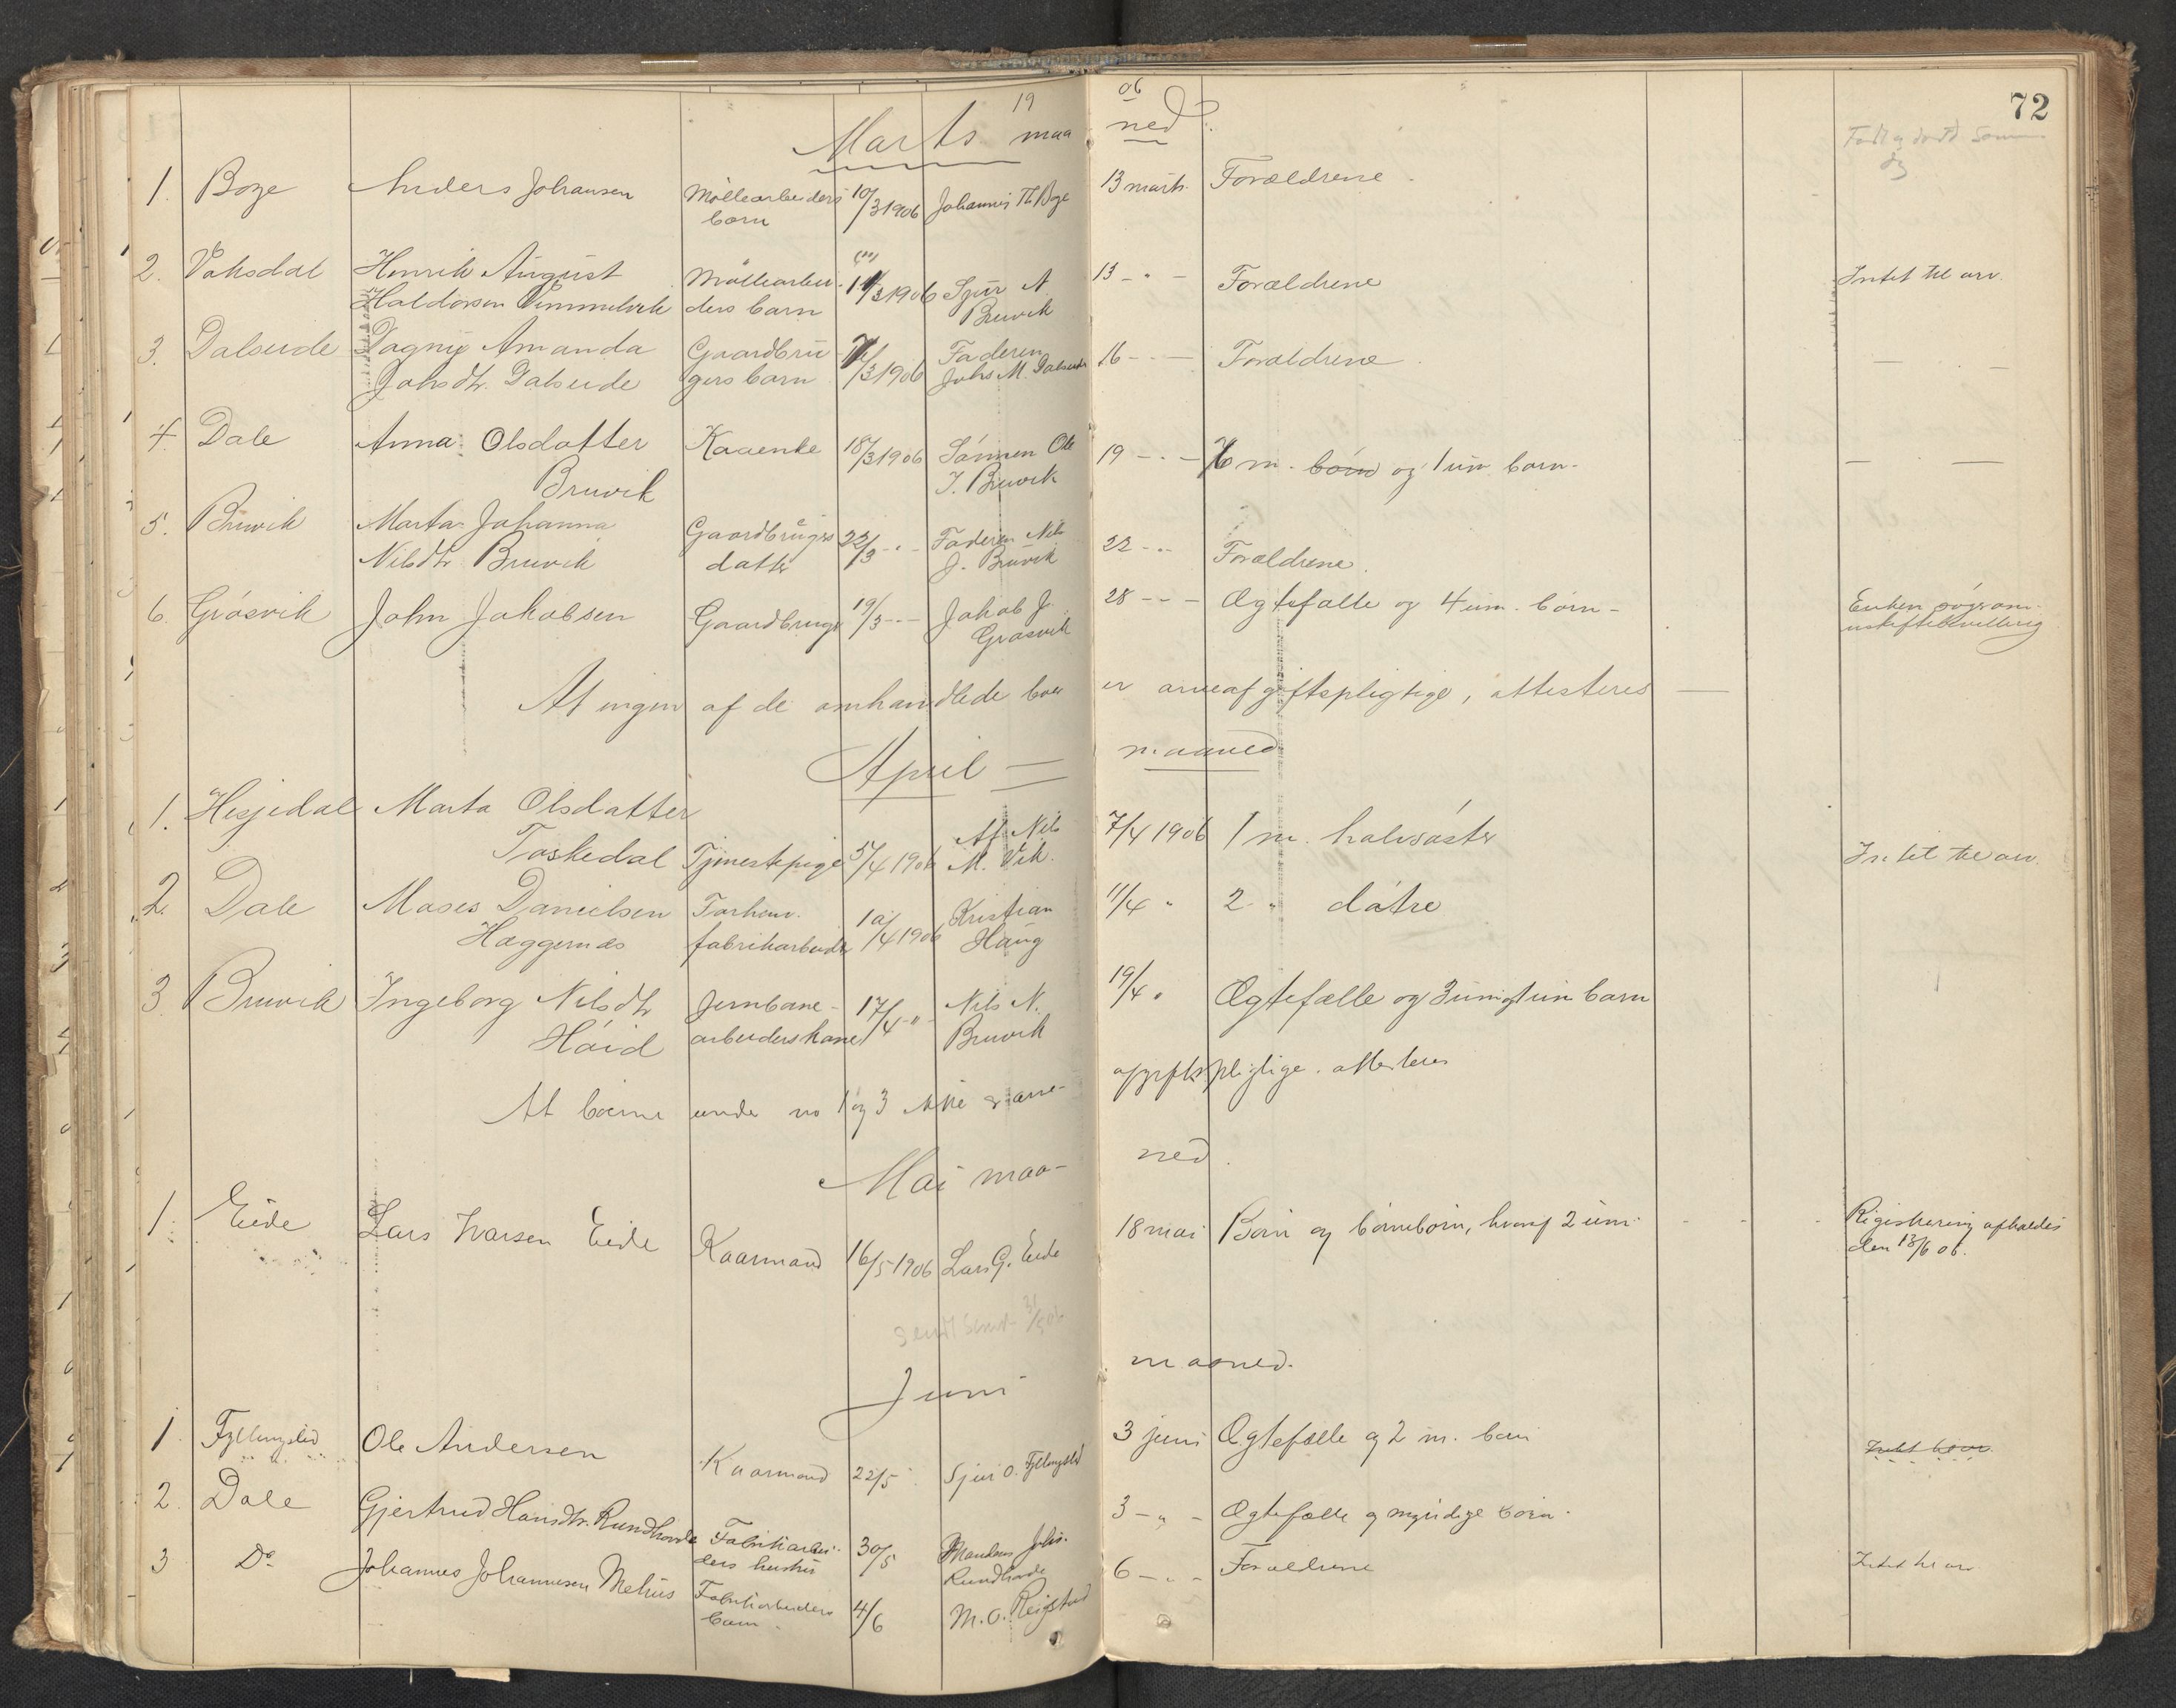 72
1906
Marts maaned
1. Boge Anders Johansen Möllearbeiders 10/3 1906 Johannes Th Boge 13 marts. Forældrene
barn
2. Vaksdal Henrik August Möllearbei- 11/3 1906 Sjur A 13 - " - Forældrene Intet til arv.
Haldorsen ders barn Bruvik
3. Dalseide Dagny Amanda Gaardbru /3 1906 Faderen 16 - - - Forældrene — -
Johsdtr. Dalseide gers barn Johs M. Dalseide
4 Dale Anna Olsdatter Kaaenke 18/3 1906 Sönnen Ole 19 - - - 6 m. börn og 1 um barn. — —
Bruvik I. Bruvik
5. Bruvik Marta Johanna Gaardbrugers 22/3 - " - Faderen Nils 22 - " - Forældrene.
Nilsdtr Bruvik datter J. Bruvik
6. Gråsvik John Jakobsen Gaardbruger 19/3 - - - Jakob J. 28 - - - Ægtefælle og 4 um. börn - Enken söger om
Gråsvik uskiftebevilling
At ingen af de omhandlede boer er arveafgiftspligtige, attesteres —
April — maaned
1. Hesjedal Marta Olsdatter Af Nils 7/4 1906 1 m. halvsöster
Toskedal Tjenestepige 5/4 1906 M. Vik. Intet til arv.
2. Dale Moses Danielsen Forhenv. 10/4 1906 Kristian 11/4 " 2 " döttre
Hæggernæs fabrikarbeider Haug
3 Bruvik Ingeborg Nilsdtr Jernbane- 17/4 - " - Nils N. 19/4 " Ægtefælle og 3 um barn
arbeiders kone Bruvik
At boerne under no 1 og 3 ikke er arve- afgiftspligtige. attesteres
Mai maa- ned.
1. Eide Lars Ivarsen Eide Kaarmand 16/5 1906 Lars G. Eide 18 mai Börn og börnebörn, hvoraf 2 um. - - - Registrering afholdes
den 13/6 06.
Juni maaned.
1. Fyllingslid Ole Andersen Kaarmand 22/5 Sjur O. Fyllingslid 3 juni Ægtefælle og 2 m. barn Intet til arv.
2. Dale Gjertrud Hansdtr. Rundhovde Fabrikarbei- 30/5 Manden Johs. 3 - " - Ægtefælle og myndige börn.
ders hustru Rundhovde
3 Do Johannes Johannesen Melhus Fabrikarbeiders 4/6 M. O. Reigstad 6 - " - Forældrene Intet til arv
barn